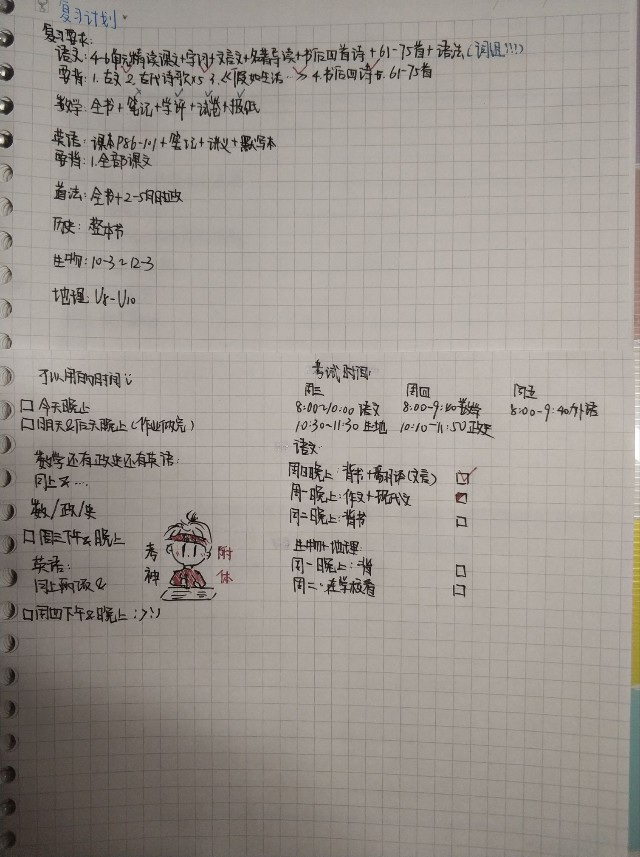 复习计划
复习要求:
语文: 4-6单元精读课文+字词+文言文+名著导读+书后四首诗+61-75首+语法(词组!!!)
要背: 1.古文 2.古代诗歌x5 3.《假如生活 4.书后四诗 5.61-75首
数学: 全书+笔记+学评+试卷+报纸
英语: 课本P86-101+笔记+讲义+默写本
要背: 1.全部课文
道法: 全书+2-5月时政
历史: 整本书
生物: 10-3~12-3
地理: U8-U10
可以用的时间
考试时间:
周三 周四 周五
8:00~10:00 语文 8:00-9:40数学 8:00-9:40外语
10:30~11:30 生地 10:10-11:50政史
今天晚上
明天&后天晚上(作业做完)
数学还有政史还有英语:
同上又....
数/政/史
周三下午&晚上
英语:
同上两项&
周四下午&晚上 :>!)
考神附体
语文:
周日晚上: 背书+看外语(文言)
周一晚上: 作文+现代文
周二晚上: 背书
生物+地理:
周一晚上: 背
周二: 在学校看